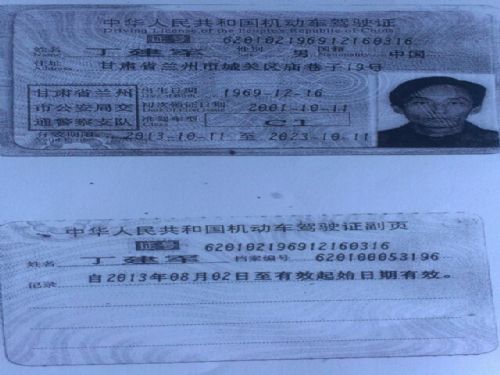 中华人民共和国机动车驾驶证
Driving License of the People's Republic of China
证号 620102196912160316
姓名 丁建军 性别 男 国籍 中国
Name
住址 甘肃省兰州市城关区庙巷子19号
Address
甘肃省兰州 出生日期 1969-12-16
市公安局交 初次领证日期 2001-10-11
通警察支队 准驾车型 C1
Class
有效期限 2013-10-11 至 2023-10-11
中华人民共和国机动车驾驶证副页
证号 620102196912160316
姓名 丁建军 档案编号 620100053196
记录 自2013年08月02日至有效起始日期有效。